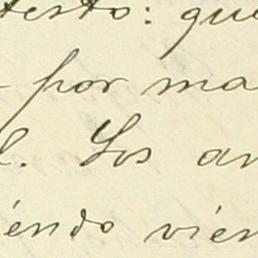 testo: que
por ma
l. Los an
iendo vien